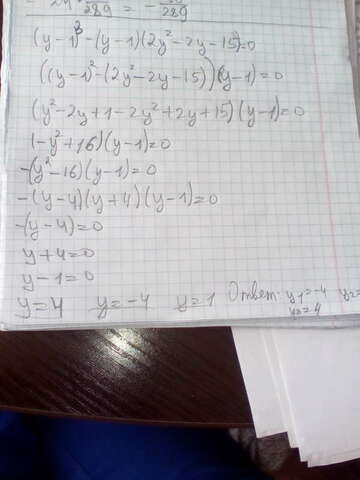 289 = - 289
(y-1)³-(y-1)(2y²-2y-15)=0
((y-1)²-(2y²-2y-15))(y-1)=0
(y²-2y+1-2y²+2y+15)(y-1)=0
(-y²+16)(y-1)=0
-(y²-16)(y-1)=0
-(y-4)(y+4)(y-1)=0
-(y-4)=0
y+4=0
y-1=0
y=4 y=-4 y=1 Ответ: y₁=-4 y₂=
y₃=4